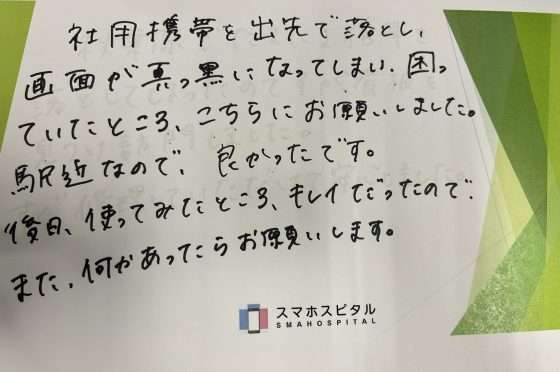 社用携帯を出先で落とし、
画面が真っ黒になってしまい、困っ
ていたところ、こちらにお願いしました。
駅近なので、良かったです。
後日、使ってみたところ、キレイだったので、
また、何かあったらお願いします。
スマホスピタル
SMAHOSPITAL